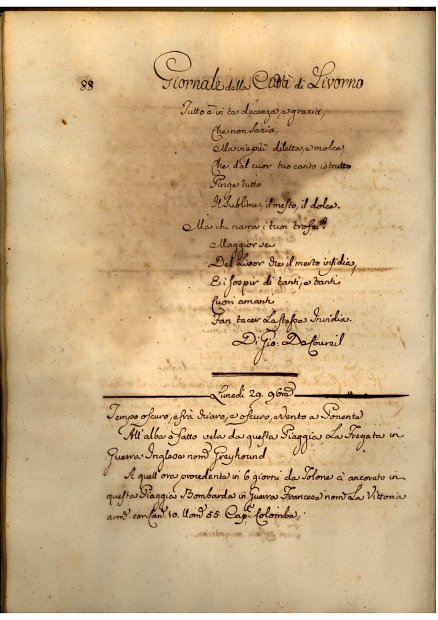 88 Giornale della Città di Livorno
Tutto è in te decenza, e grazia,
Che non sazia,
Ma vie più diletta, e molce,
Che dal cuor tuo canto istrutto
Pinge tutto
Il Sublime, il mesto, il dolce.
Ma chi narra i tuoi trofei?
Maggior sei
Del Livor che il merto insidia,
E i sospir di tanti, e tanti
Cuori amanti
Fan tacer La stessa Invidia.
Di Gio. De Coureil
Lunedì 29. 9bre
Tempo oscuro, e frà chiaro, e oscuro, e Vento a Ponente
All'alba è fatto vela da questa Piaggia La Fregata in
Guerra Inglese nomta Greyhound
A quell'ora procedente in 6 giorni da Tolone ci ancorato in
questa Piaggia Bombarda in Guerra Francese nomta La Vittoria
armta con Can. 10. Uom. 55 Capn. Colomba.